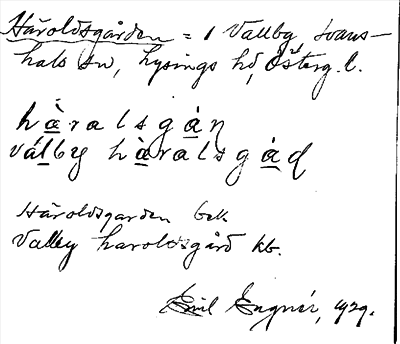 Häroldsgården = 1 Vallby Svans-
hals sn, Lysings hd, Österg. l.
hàralsgàṇ
válby hàralsgàd
Häroldsgarden bek.
Valley haroldsgård kb.
Emil Engnér, 1929.